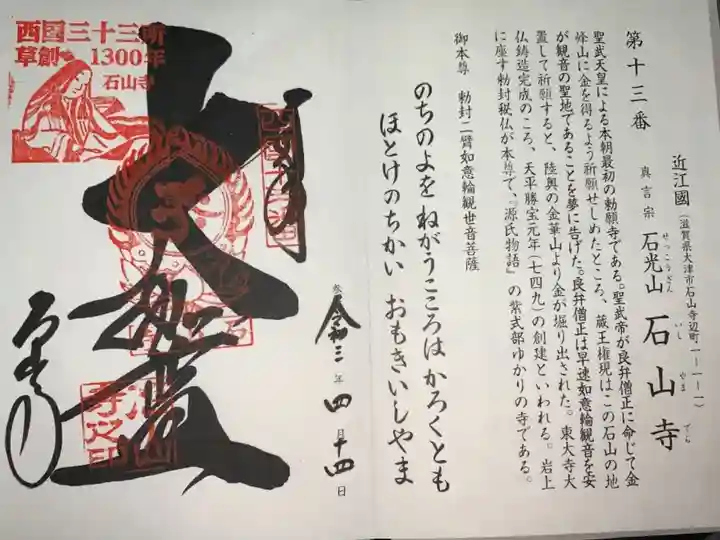 第十三番
近江國（滋賀県大津市石山寺辺町一ー一ー一）
真言宗 石光山 石山寺
せっこうざん いしやまでら
聖武天皇による本朝最初の勅願寺である。聖武帝が良弁僧正に命じて金
峰山に金を得るよう祈願せしめたところ、蔵王権現はこの石山の地
が観音の聖地であることを夢に告げた。良弁僧正は早速如意輪観音を安
置して祈願すると、陸奥の金華山より金が堀り出された。東大寺大
仏鋳造完成のころ、天平勝宝元年（七四九）の創建といわれる。岩上
に座す勅封秘仏が本尊で、『源氏物語』の紫式部ゆかりの寺である。
御本尊 勅封二臂如意輪観世音菩薩
のちのよを ねがうこころは かろくとも
ほとけのちかい おもきいしやま
令和三年四月十四日
奉拝
大悲殿
石山寺
西国三十三所
草創1300年
石山寺
石山
寺之印